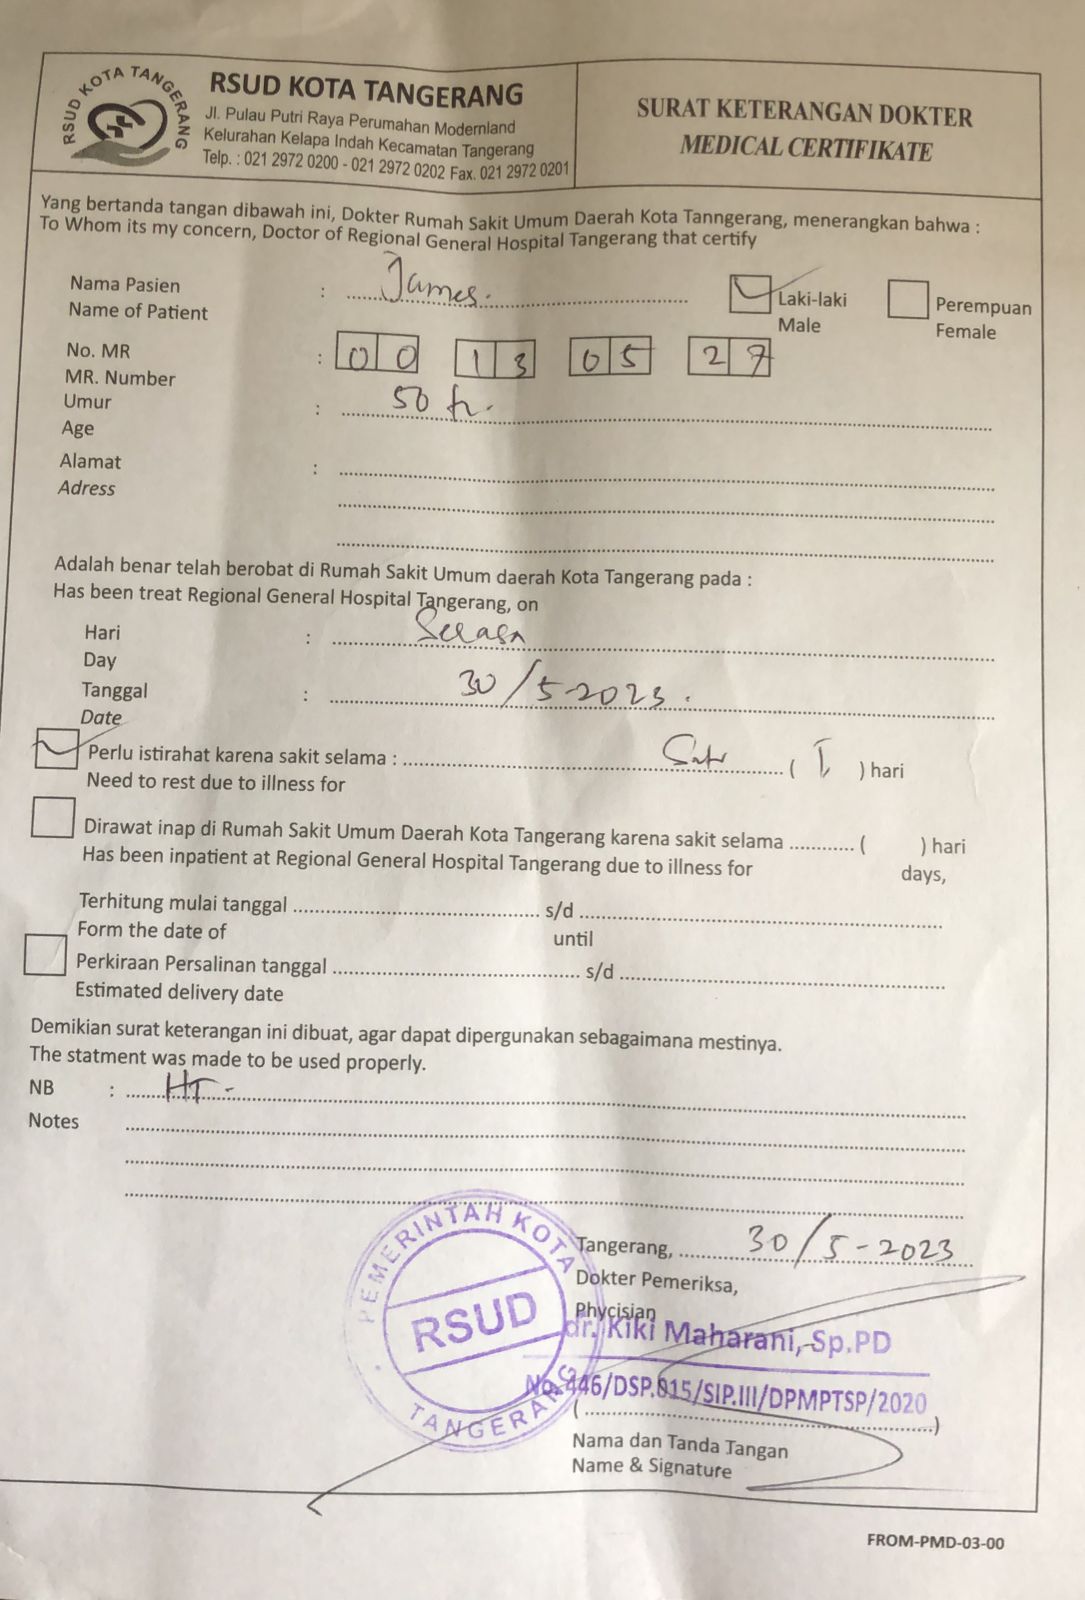 RSUD KOTA TANGERANG
RSUD KOTA TANGERANG
Jl. Pulau Putri Raya Perumahan Modernland
Kelurahan Kelapa Indah Kecamatan Tangerang
Telp. : 021 2972 0200 - 021 2972 0202 Fax. 021 2972 0201
SURAT KETERANGAN DOKTER
MEDICAL CERTIFIKATE
Yang bertanda tangan dibawah ini, Dokter Rumah Sakit Umum Daerah Kota Tanngerang, menerangkan bahwa :
To Whom its my concern, Doctor of Regional General Hospital Tangerang that certify
Nama Pasien : James. Laki-laki Perempuan
Name of Patient Male Female
No. MR : 00 13 05 27
MR. Number
Umur : 50 th.
Age
Alamat :
Adress
Adalah benar telah berobat di Rumah Sakit Umum daerah Kota Tangerang pada :
Has been treat Regional General Hospital Tangerang, on
Hari : Selasa
Day
Tanggal : 30/5-2023.
Date
Perlu istirahat karena sakit selama : Satu ( 1 ) hari
Need to rest due to illness for
Dirawat inap di Rumah Sakit Umum Daerah Kota Tangerang karena sakit selama ............ ( ) hari
Has been inpatient at Regional General Hospital Tangerang due to illness for days,
Terhitung mulai tanggal ............ s/d ............
Form the date of until
Perkiraan Persalinan tanggal ............ s/d ............
Estimated delivery date
Demikian surat keterangan ini dibuat, agar dapat dipergunakan sebagaimana mestinya.
The statment was made to be used properly.
NB : HT -
Notes
Tangerang, 30/5-2023
Dokter Pemeriksa,
Phycisian
dr. Kiki Maharani, Sp.PD
No. 446/DSP.015/SIP.III/DPMPTSP/2020
(............)
Nama dan Tanda Tangan
Name & Signature
PEMERINTAH KOTA
RSUD
TANGERANG
FROM-PMD-03-00